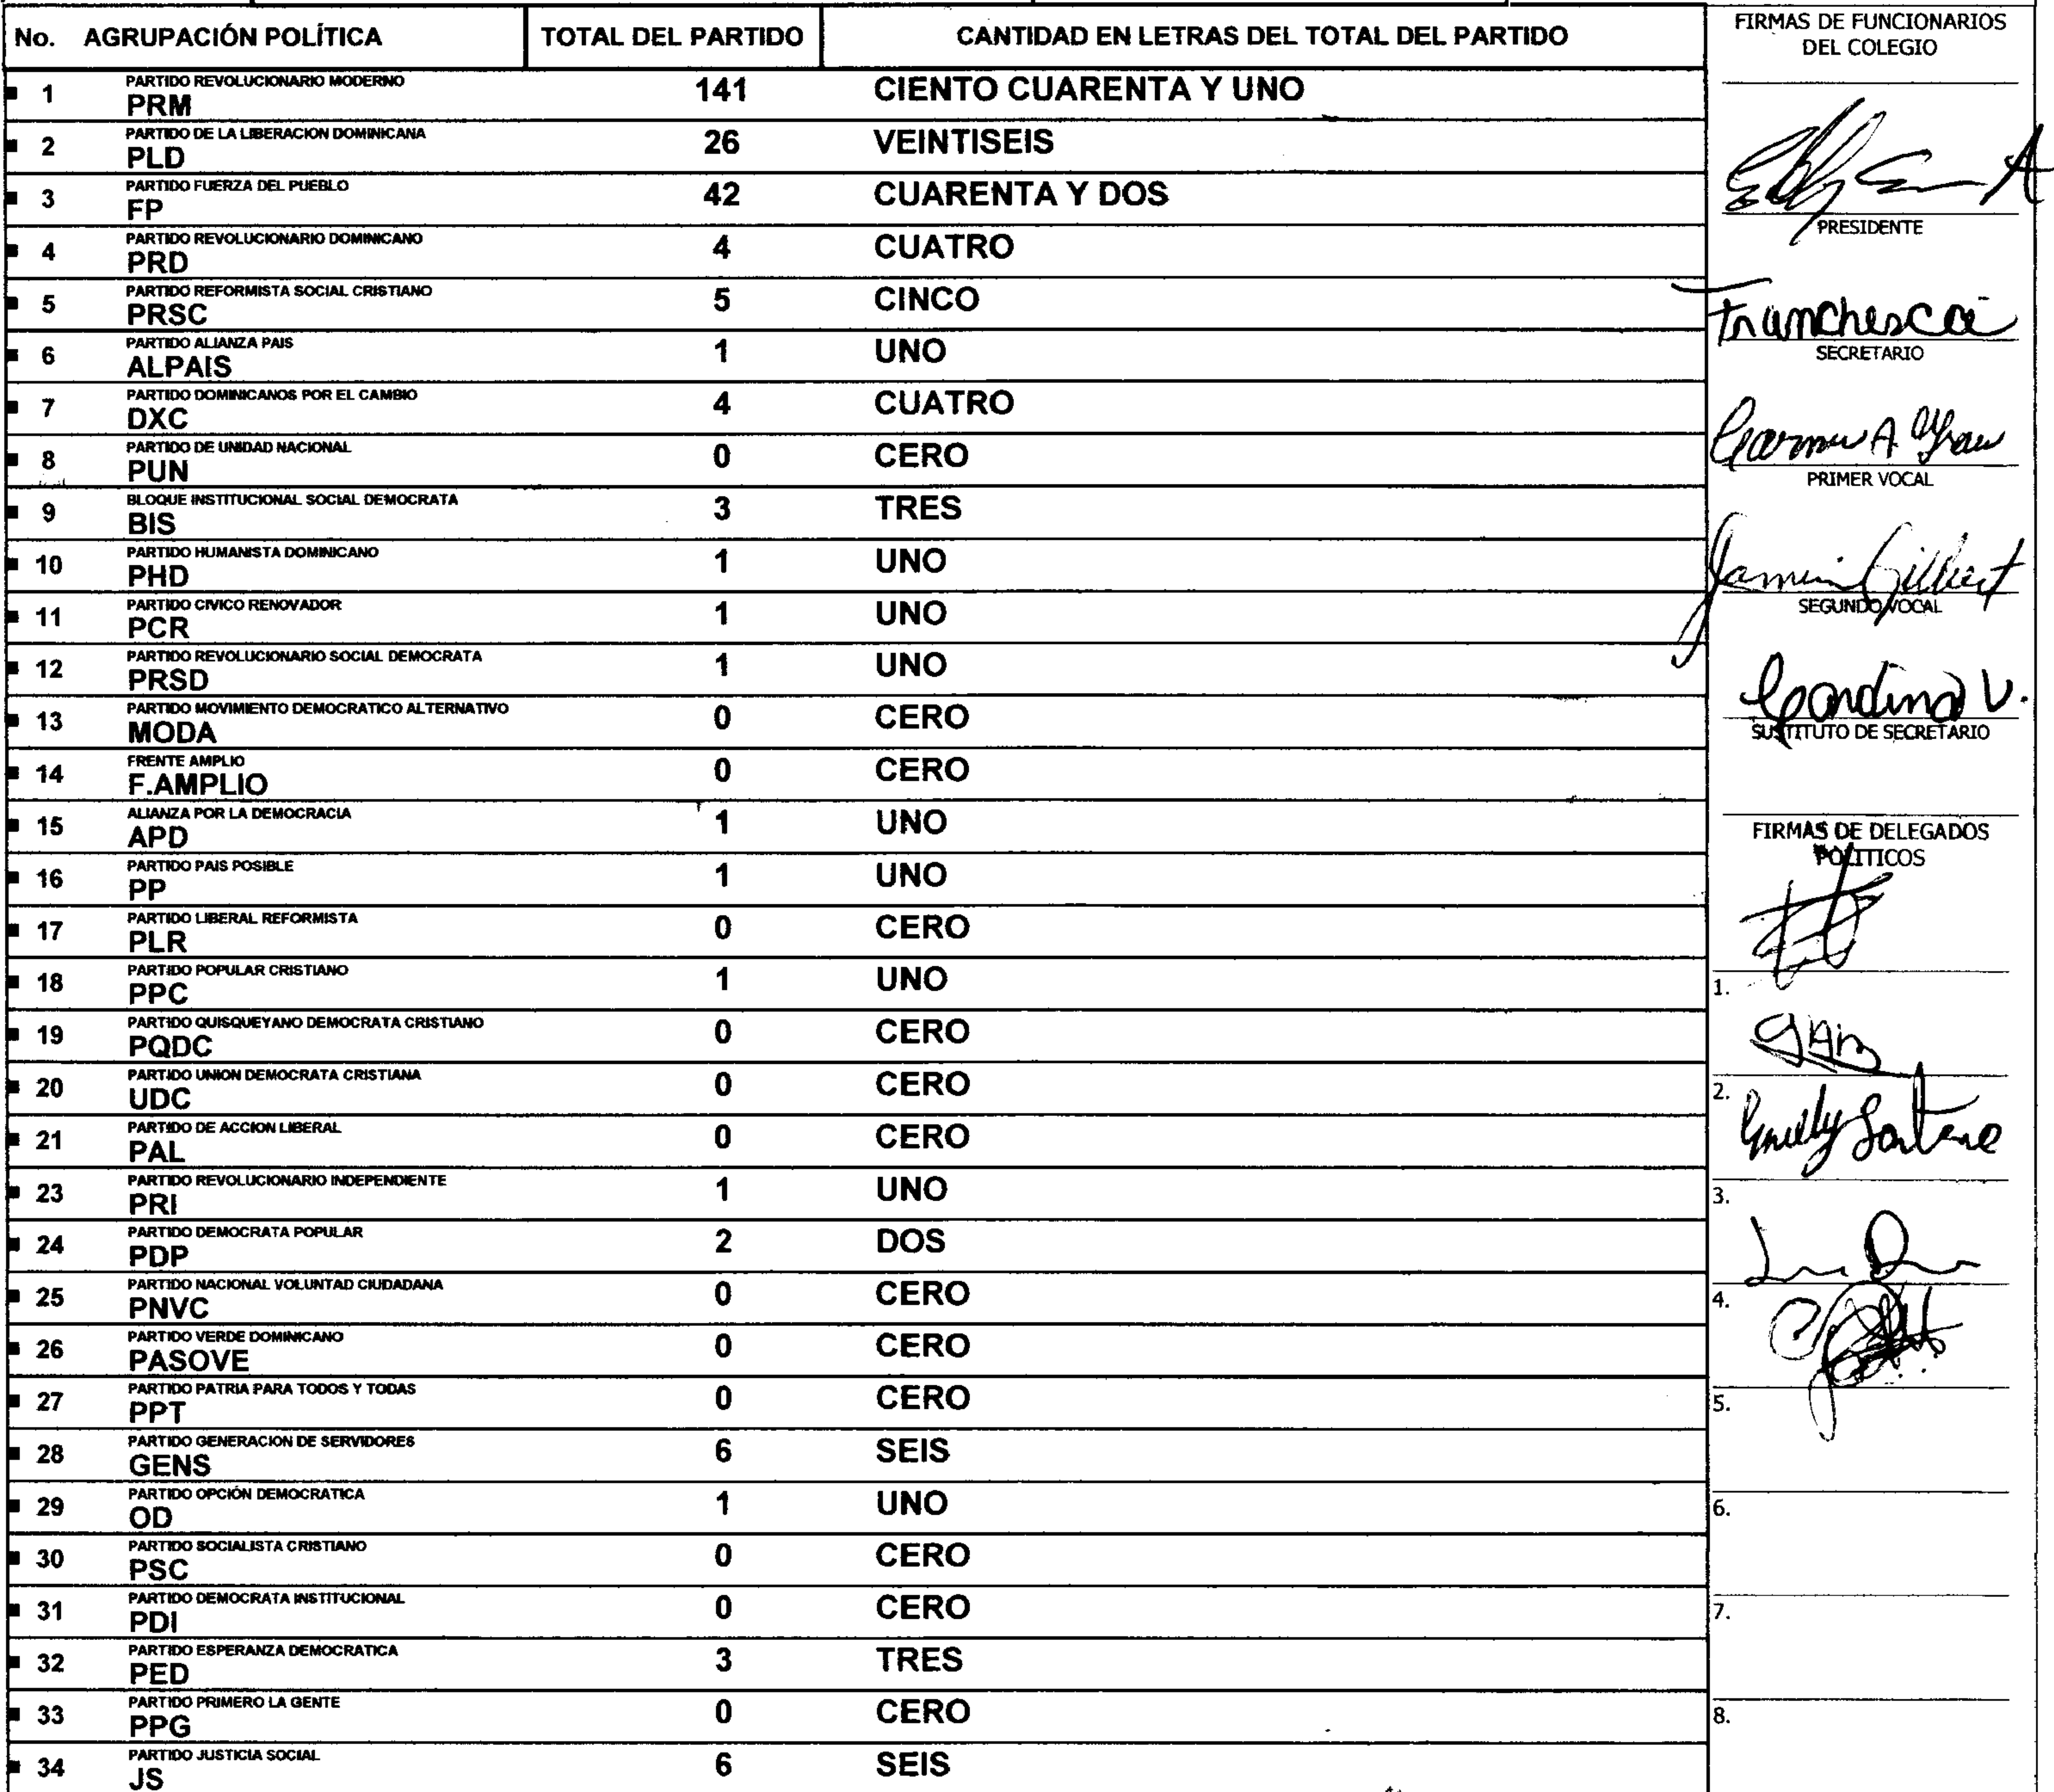 No. AGRUPACIÓN POLÍTICA TOTAL DEL PARTIDO CANTIDAD EN LETRAS DEL TOTAL DEL PARTIDO
1 PARTIDO REVOLUCIONARIO MODERNO
PRM 141 CIENTO CUARENTA Y UNO
2 PARTIDO DE LA LIBERACION DOMINICANA
PLD 26 VEINTISEIS
3 PARTIDO FUERZA DEL PUEBLO
FP 42 CUARENTA Y DOS
4 PARTIDO REVOLUCIONARIO DOMINICANO
PRD 4 CUATRO
5 PARTIDO REFORMISTA SOCIAL CRISTIANO
PRSC 5 CINCO
6 PARTIDO ALIANZA PAIS
ALPAIS 1 UNO
7 PARTIDO DOMINICANOS POR EL CAMBIO
DXC 4 CUATRO
8 PARTIDO DE UNIDAD NACIONAL
PUN 0 CERO
9 BLOQUE INSTITUCIONAL SOCIAL DEMOCRATA
BIS 3 TRES
10 PARTIDO HUMANISTA DOMINICANO
PHD 1 UNO
11 PARTIDO CIVICO RENOVADOR
PCR 1 UNO
12 PARTIDO REVOLUCIONARIO SOCIAL DEMOCRATA
PRSD 1 UNO
13 PARTIDO MOVIMIENTO DEMOCRATICO ALTERNATIVO
MODA 0 CERO
14 FRENTE AMPLIO
F.AMPLIO 0 CERO
15 ALIANZA POR LA DEMOCRACIA
APD 1 UNO
16 PARTIDO PAIS POSIBLE
PP 1 UNO
17 PARTIDO LIBERAL REFORMISTA
PLR 0 CERO
18 PARTIDO POPULAR CRISTIANO
PPC 1 UNO
19 PARTIDO QUISQUEYANO DEMOCRATA CRISTIANO
PQDC 0 CERO
20 PARTIDO UNION DEMOCRATA CRISTIANA
UDC 0 CERO
21 PARTIDO DE ACCION LIBERAL
PAL 0 CERO
23 PARTIDO REVOLUCIONARIO INDEPENDIENTE
PRI 1 UNO
24 PARTIDO DEMOCRATA POPULAR
PDP 2 DOS
25 PARTIDO NACIONAL VOLUNTAD CIUDADANA
PNVC 0 CERO
26 PARTIDO VERDE DOMINICANO
PASOVE 0 CERO
27 PARTIDO PATRIA PARA TODOS Y TODAS
PPT 0 CERO
28 PARTIDO GENERACION DE SERVIDORES
GENS 6 SEIS
29 PARTIDO OPCIÓN DEMOCRATICA
OD 1 UNO
30 PARTIDO SOCIALISTA CRISTIANO
PSC 0 CERO
31 PARTIDO DEMOCRATA INSTITUCIONAL
PDI 0 CERO
32 PARTIDO ESPERANZA DEMOCRATICA
PED 3 TRES
33 PARTIDO PRIMERO LA GENTE
PPG 0 CERO
34 PARTIDO JUSTICIA SOCIAL
JS 6 SEIS
FIRMAS DE FUNCIONARIOS
DEL COLEGIO
PRESIDENTE
Franchesca
SECRETARIO
PRIMER VOCAL
Gilbert
SEGUNDO VOCAL
SUSTITUTO DE SECRETARIO
FIRMAS DE DELEGADOS
POLITICOS
1.
2.
3.
4.
5.
6.
7.
8.